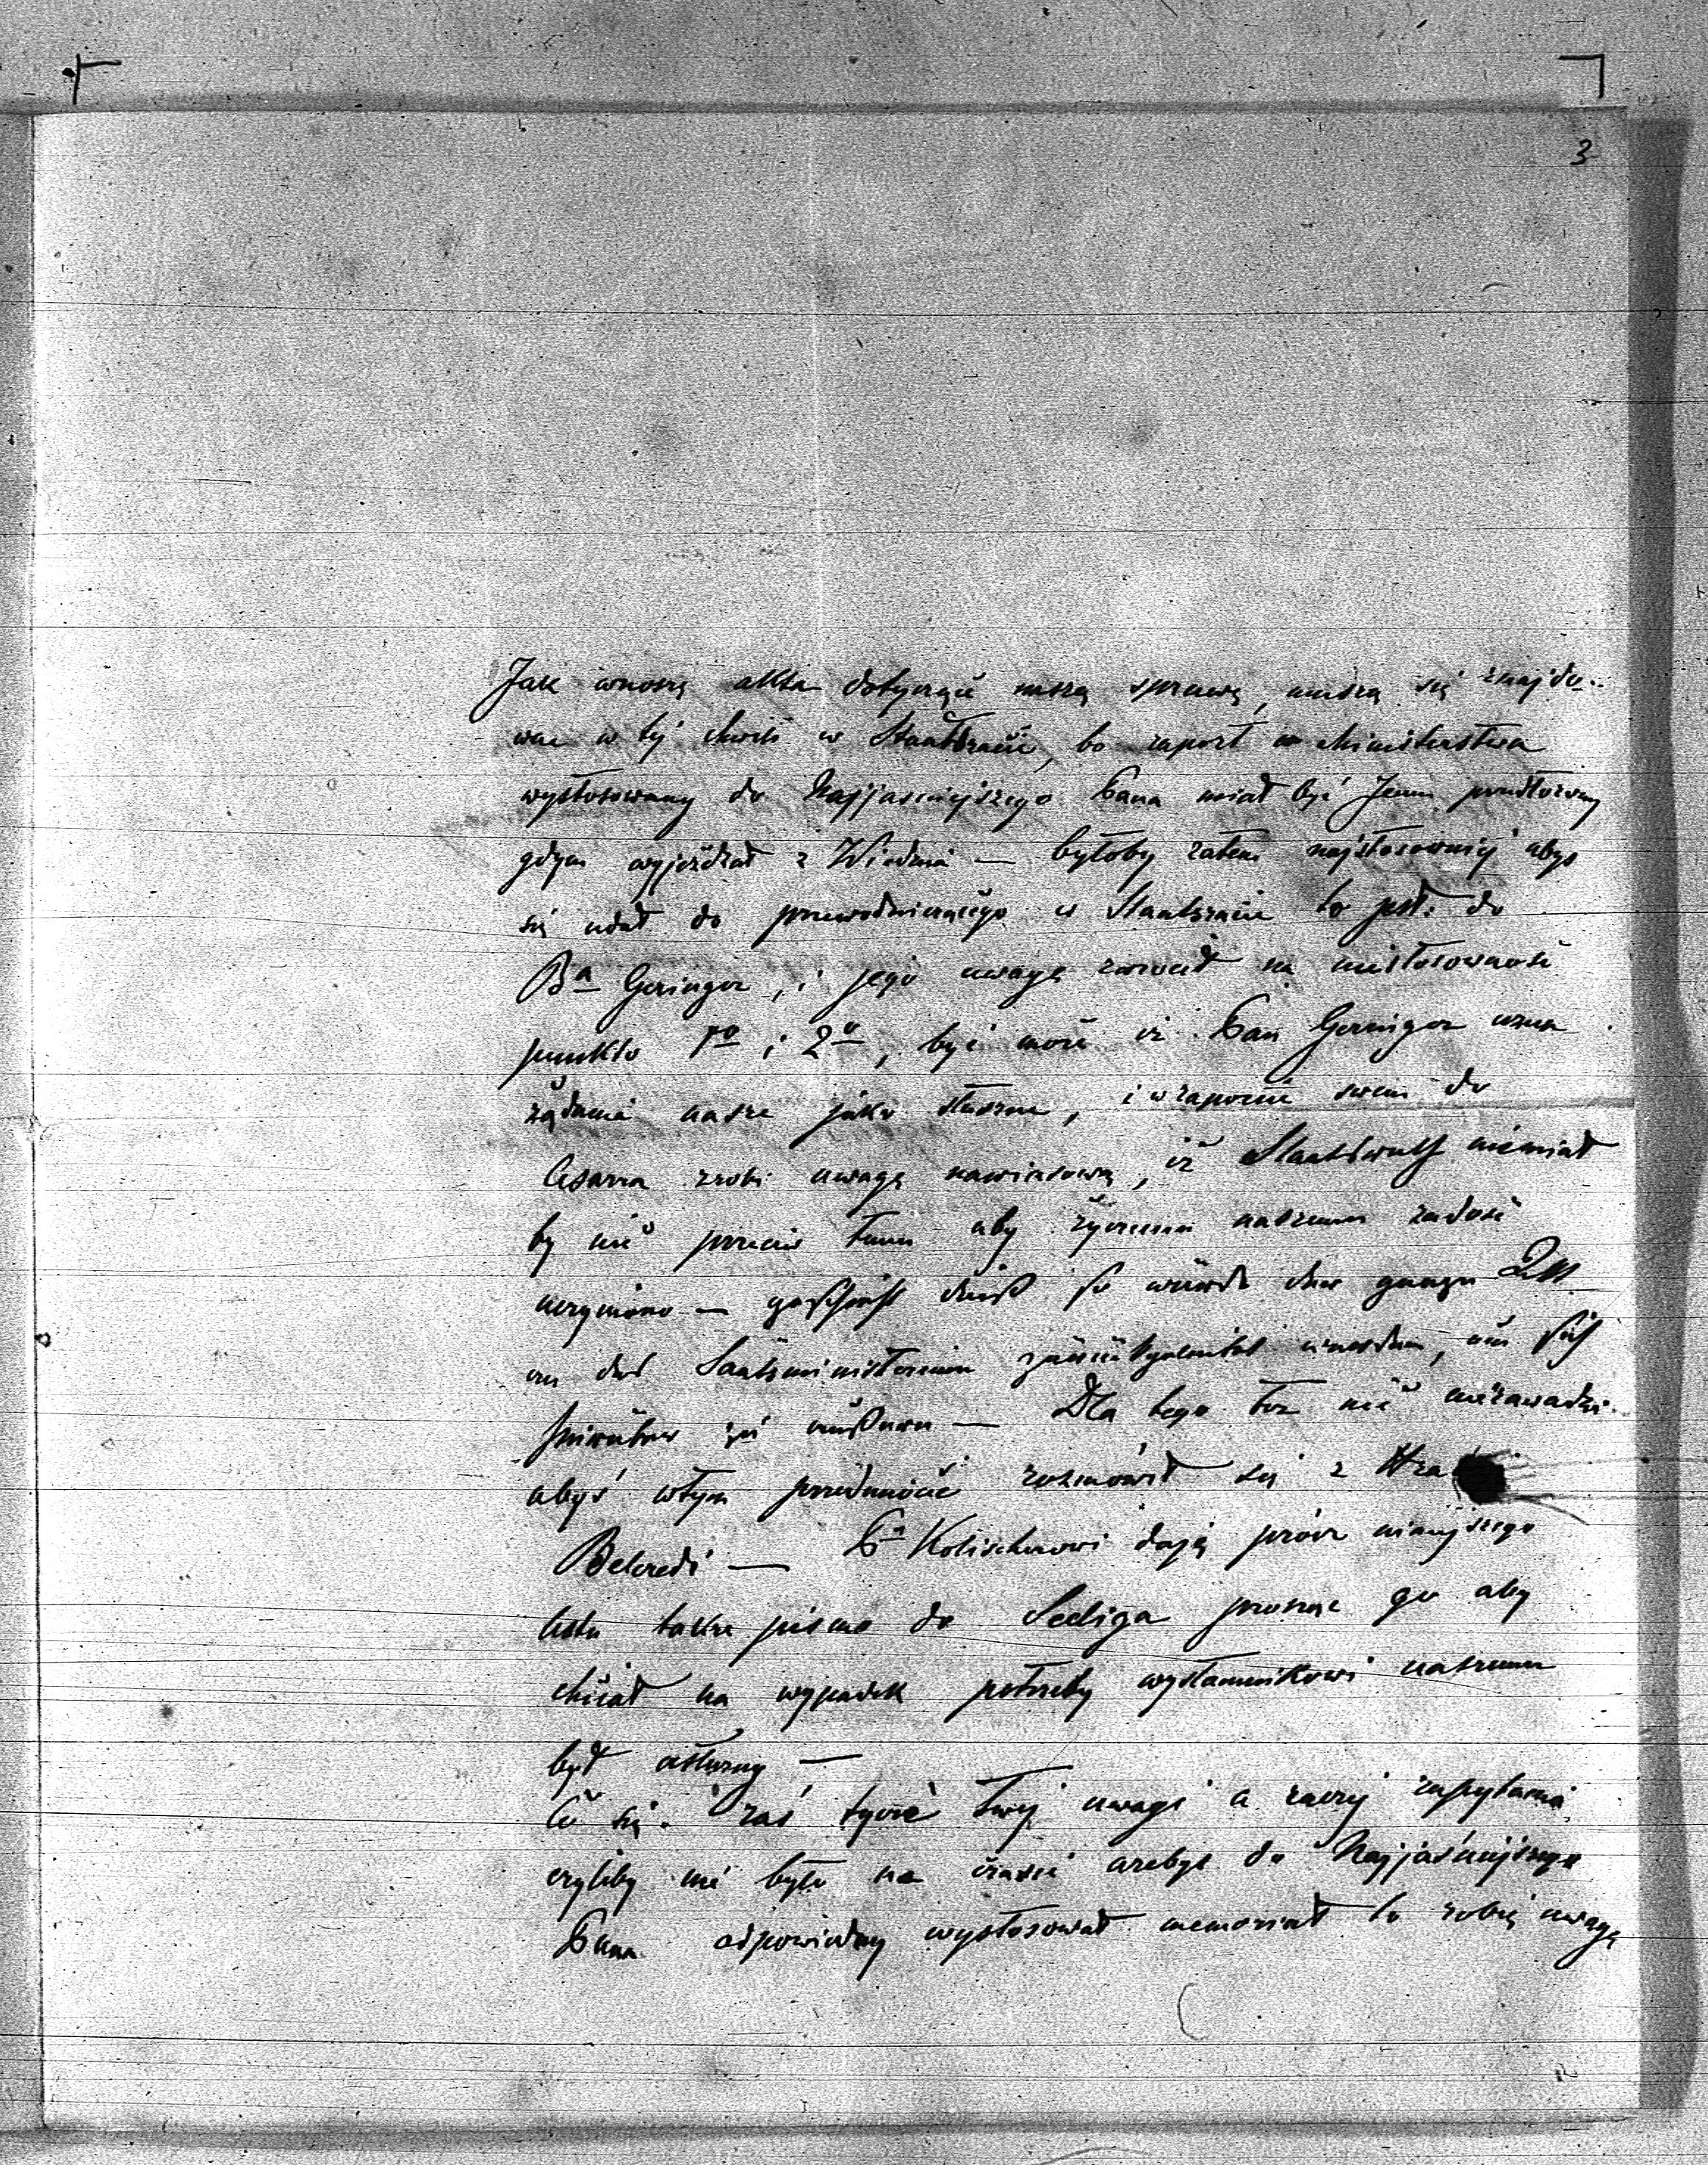 3
Jak wnoszę akta dotyczące naszą sprawę, muszą się znajdo-
wać w tej chwili w Staatsracie, bo raport Ministerstwa
wystosowany do Najjaśniejszego Pana miał być Jemu przedłożony
gdym wyjeżdżał z Wiednia — byłoby zatem najstosowniej abyś
się udał do przewodniczącego w Staatsracie to jest: do
Bª Geringer, i jego uwagę zwrócił na niestosowność
punktu 1º i 2º, być może iż Pan Geringer uzna
żądanie nasze jako słuszne, i w raporcie swem do
Cesarza zrobi uwagę nawiasową, iż Staatsrath niemiał
by nic przeciw temu aby życzeniu naszemu zadość
uczyniono — geschieht dieß so würde der ganze Akt
an das Staatsministerium zurückgeleitet werden, um sich
zu äußern — Dla tego też nic niezawadzi
abyś w tym przedmiocie rozmówił się z Hra
Belcredi — Pª Kolischerowi daję prócz niniejszego
listu także pismo do Seeliga prosząc go aby
chciał na wypadek potrzeby wysłannikowi naszemu
być usłużny —
Co się zaś tyczé Twej uwagi a raczej zapytania
czyliby nie było na czasie ażebyś do Najjaśniejszego
Pana odpowiedny wystosował memoriał to robię uwagę